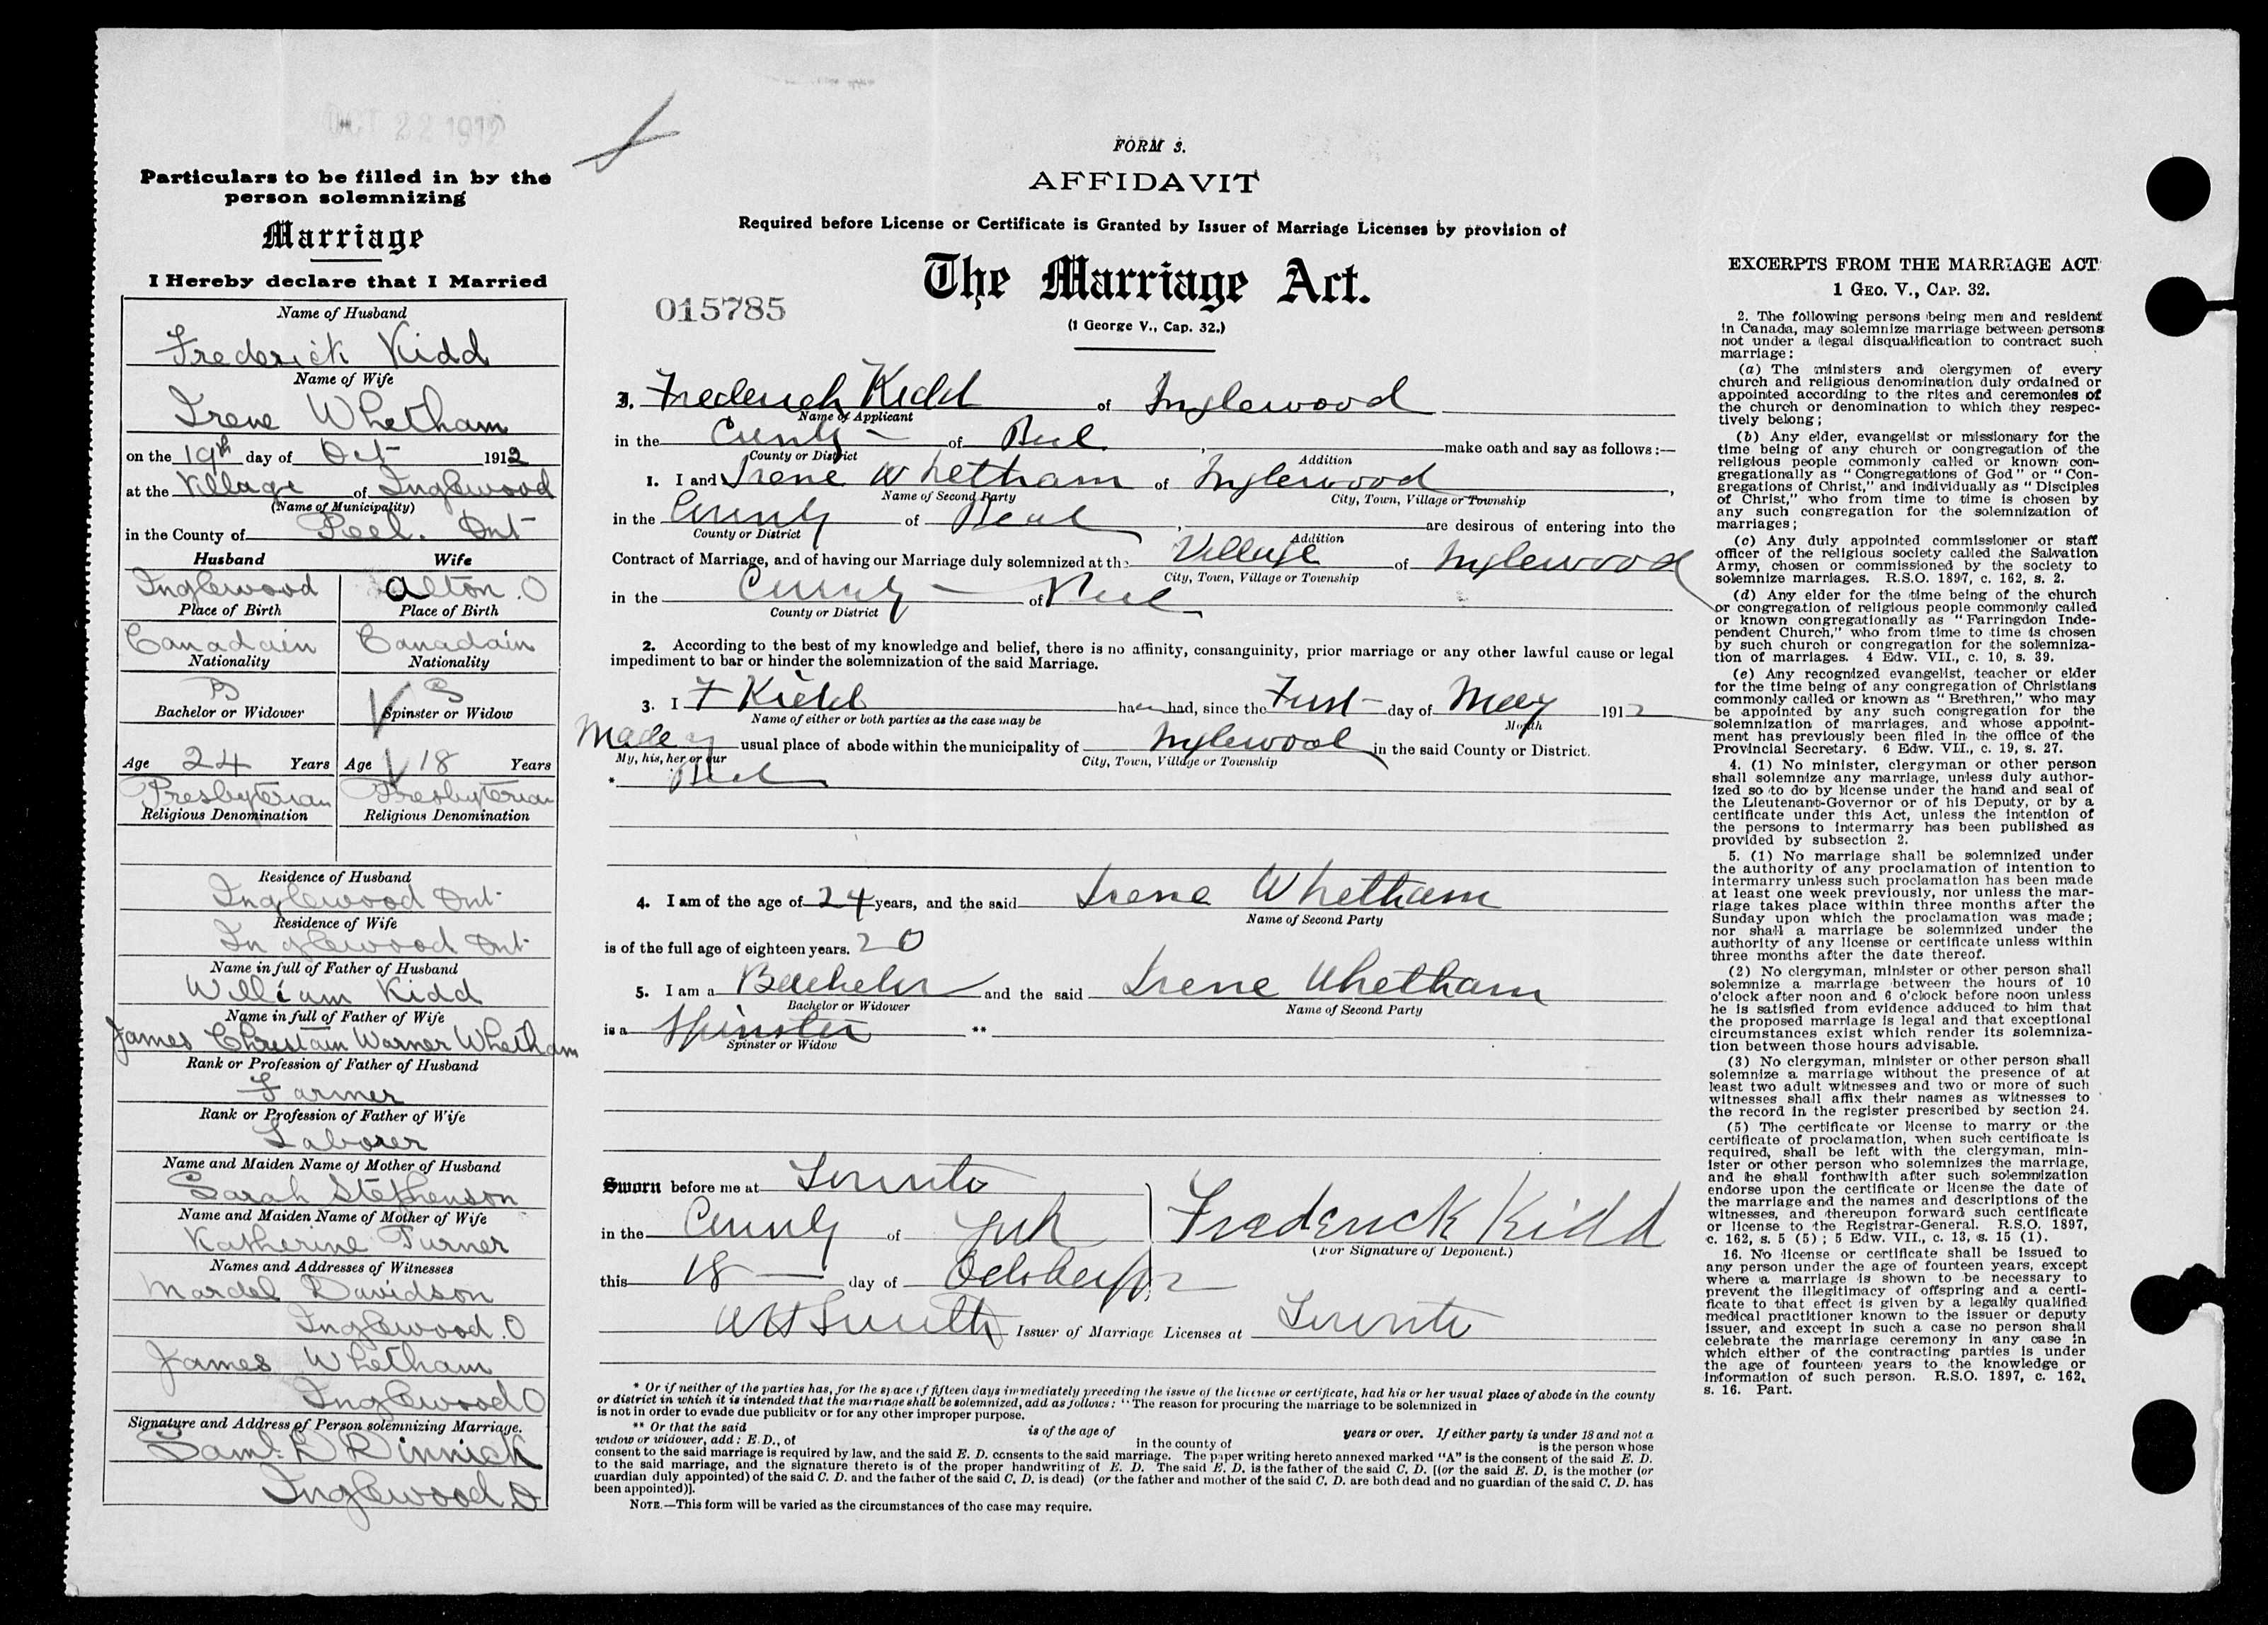 OCT 22 1912
Particulars to be filled in by the
person solemnizing
Marriage
I Hereby declare that I Married
Name of Husband
Frederick Kidd
Name of Wife
Irene Whetham
on the 19th day of Oct 1912
at the Village of Inglewood
(Name of Municipality)
in the County of Peel. Ont
Husband Wife
Inglewood Alton. O
Place of Birth Place of Birth
Canadain Canadain
Nationality Nationality
B S
Bachelor or Widower Spinster or Widow
Age 24 Years Age 18 Years
Presbyterian Presbyterian
Religious Denomination Religious Denomination
Residence of Husband
Inglewood Ont
Residence of Wife
Inglewood Ont
Name in full of Father of Husband
William Kidd
Name in full of Father of Wife
James Christain Warner Whetham
Rank or Profession of Father of Husband
Farmer
Rank or Profession of Father of Wife
Laborer
Name and Maiden Name of Mother of Husband
Sarah Stephenson
Name and Maiden Name of Mother of Wife
Katherine Turner
Names and Addresses of Witnesses
Mardel Davidson
Inglewood. O
James Whetham
Inglewood O
Signature and Address of Person solemnizing Marriage.
Saml. D Dinnick
Inglewood. O
FORM 3.
AFFIDAVIT
Required before License or Certificate is Granted by Issuer of Marriage Licenses by provision of
The Marriage Act.
015785
(1 George V., Cap. 32.)
I. Frederick Kidd of Inglewood
Name of Applicant
in the County of Peel , make oath and say as follows:—
County or District Addition
1. I and Irene Whetham of Inglewood ,
Name of Second Party City, Town, Village or Township
in the County of Peel , are desirous of entering into the
County or District Addition
Contract of Marriage, and of having our Marriage duly solemnized at the Village of Inglewood
City, Town, Village or Township
in the County of Peel
County or District
2. According to the best of my knowledge and belief, there is no affinity, consanguinity, prior marriage or any other lawful cause or legal
impediment to bar or hinder the solemnization of the said Marriage.
3. I F Kidd ha had, since the First day of May 1912
Name of either or both parties as the case may be Month
Made my usual place of abode within the municipality of Inglewood in the said County or District.
My, his, her or our City, Town, Village or Township
* Peel
4. I am of the age of 24 years, and the said Irene Whetham
Name of Second Party
is of the full age of eighteen years. 20
5. I am a Bachelor and the said Irene Whetham
Bachelor or Widower Name of Second Party
is a Spinster **
Spinster or Widow
Sworn before me at Toronto
in the County of York Frederick Kidd
(For Signature of Deponent.)
this 18 day of October 1912
WH Smith Issuer of Marriage Licenses at Toronto
* Or if neither of the parties has, for the space of fifteen days immediately preceding the issue of the license or certificate, had his or her usual place of abode in the county
or district in which it is intended that the marriage shall be solemnized, add as follows: "The reason for procuring the marriage to be solemnized in
is not in order to evade due publicity or for any other improper purpose.
** Or that the said is of the age of years or over. If either party is under 18 and not a
widow or widower, add: E.D., of in the county of is the person whose
consent to the said marriage is required by law, and the said E. D. consents to the said marriage. The paper writing hereto annexed marked "A" is the consent of the said E. D.
to the said marriage, and the signature thereto is of the proper handwriting of E. D. The said E. D. is the father of the said C. D. [(or the said E. D. is the mother (or
guardian duly appointed) of the said C. D. and the father of the said C. D. is dead) (or the father and mother of the said C. D. are both dead and no guardian of the said C. D. has
been appointed)].
NOTE.—This form will be varied as the circumstances of the case may require.
EXCERPTS FROM THE MARRIAGE ACT
1 GEO. V., CAP. 32.
2. The following persons being men and resident
in Canada, may solemnize marriage between persons
not under a legal disqualification to contract such
marriage:
(a) The ministers and clergymen of every
church and religious denomination duly ordained or
appointed according to the rites and ceremonies of
the church or denomination to which they respec-
tively belong;
(b) Any elder, evangelist or missionary for the
time being of any church or congregation of the
religious people commonly called or known con-
gregationally as "Congregations of God" or "Con-
gregations of Christ," and individually as "Disciples
of Christ," who from time to time is chosen by
any such congregation for the solemnization of
marriages;
(c) Any duly appointed commissioner or staff
officer of the religious society called the Salvation
Army, chosen or commissioned by the society to
solemnize marriages. R.S.O. 1897, c. 162, s. 2.
(d) Any elder for the time being of the church
or congregation of religious people commonly called
or known congregationally as "Farringdon Inde-
pendent Church," who from time to time is chosen
by such church or congregation for the solemniza-
tion of marriages. 4 Edw. VII., c. 10, s. 39.
(e) Any recognized evangelist, teacher or elder
for the time being of any congregation of Christians
commonly called or known as "Brethren," who may
be appointed by any such congregation for the
solemnization of marriages, and whose appoint-
ment has previously been filed in the office of the
Provincial Secretary. 6 Edw. VII., c. 19, s. 27.
4. (1) No minister, clergyman or other person
shall solemnize any marriage, unless duly author-
ized so to do by license under the hand and seal of
the Lieutenant-Governor or of his Deputy, or by a
certificate under this Act, unless the intention of
the persons to intermarry has been published as
provided by subsection 2.
5. (1) No marriage shall be solemnized under
the authority of any proclamation of intention to
intermarry unless such proclamation has been made
at least one week previously, nor unless the mar-
riage takes place within three months after the
Sunday upon which the proclamation was made;
nor shall a marriage be solemnized under the
authority of any license or certificate unless within
three months after the date thereof.
(2) No clergyman, minister or other person shall
solemnize a marriage between the hours of 10
o'clock after noon and 6 o'clock before noon unless
he is satisfied from evidence adduced to him that
the proposed marriage is legal and that exceptional
circumstances exist which render its solemniza-
tion between those hours advisable.
(3) No clergyman, minister or other person shall
solemnize a marriage without the presence of at
least two adult witnesses and two or more of such
witnesses shall affix their names as witnesses to
the record in the register prescribed by section 24.
(5) The certificate or license to marry or the
certificate of proclamation, when such certificate is
required, shall be left with the clergyman, min-
ister or other person who solemnizes the marriage,
and he shall forthwith after such solemnization
endorse upon the certificate or license the date of
the marriage and the names and descriptions of the
witnesses, and thereupon forward such certificate
or license to the Registrar-General. R.S.O. 1897,
c. 162, s. 5 (5); 5 Edw. VII., c. 13, s. 15 (1).
16. No license or certificate shall be issued to
any person under the age of fourteen years, except
where a marriage is shown to be necessary to
prevent the illegitimacy of offspring and a certi-
ficate to that effect is given by a legally qualified
medical practitioner known to the issuer or deputy
issuer, and except in such a case no person shall
celebrate the marriage ceremony in any case in
which either of the contracting parties is under
the age of fourteen years to the knowledge or
information of such person. R.S.O. 1897, c. 162,
s. 16. Part.